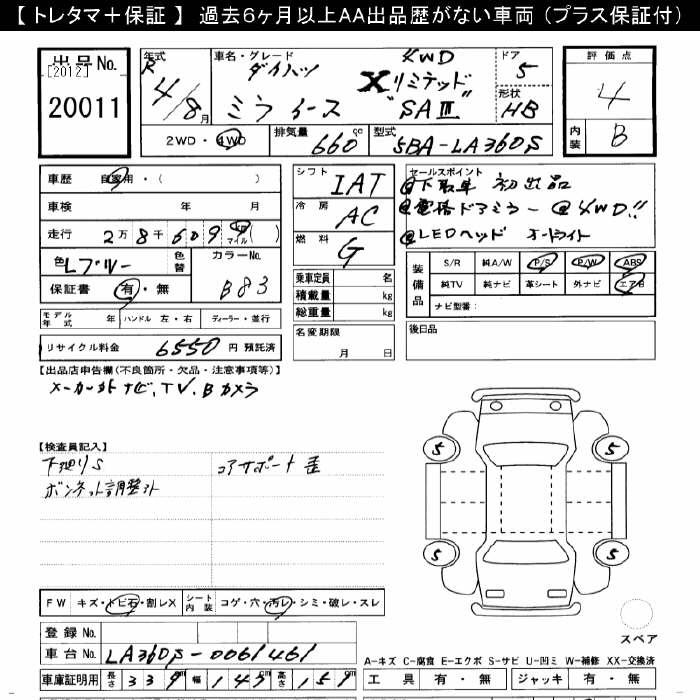 【 トレタマ＋保証 】 過去6ヶ月以上AA出品歴がない車両 (プラス保証付)
出品No.
[2012]
20011
年式 R 4/8月
車名・グレード 4WD ドア 5
ダイハツ Xリミテッド
ミラ イース "SAⅢ" 形状 HB
2WD・4WD 排気量 660 cc 型式 5BA-LA360S
評価点
4
内装 B
車歴 自家用・( )
車検 年 月
走行 2万8千609 km マイル ( )
色 Lブルー 色替 カラーNo. B83
保証書 有・無
モデル年式 年 ハンドル 左・右 ディーラー・並行
リサイクル料金 6550 円 預託済
シフト IAT
冷房 AC
燃料 G
乗車定員 名
積載量 kg
総重量 kg
名変期限
月 日
セールスポイント
@下取車 初出品
@電格ドアミラー @4WD!!
@LEDヘッド オートライト
装備品 S/R 純A/W P/S P/W ABS
純TV 純ナビ 革シート 外ナビ エアB
ナビ型番:
後日品
【出品店申告欄(不良箇所・欠品・注意事項等)】
メーカー外ナビ、TV、Bカメラ
【検査員記入】
下廻りS コアサポート歪
ボンネット調整外
5 5
5 5
スペア
FW キズ・トビ石・割レX シート内装 コゲ・穴・汚レ・シミ・破レ・スレ
登録No.
車台No. LA360S-0061461
車庫証明用 長さ 339 幅 147 高さ 151
A-キズ C-腐食 E-エクボ S-サビ U-凹ミ W-補修 XX-交換済
工具 有・無 ジャッキ 有・無